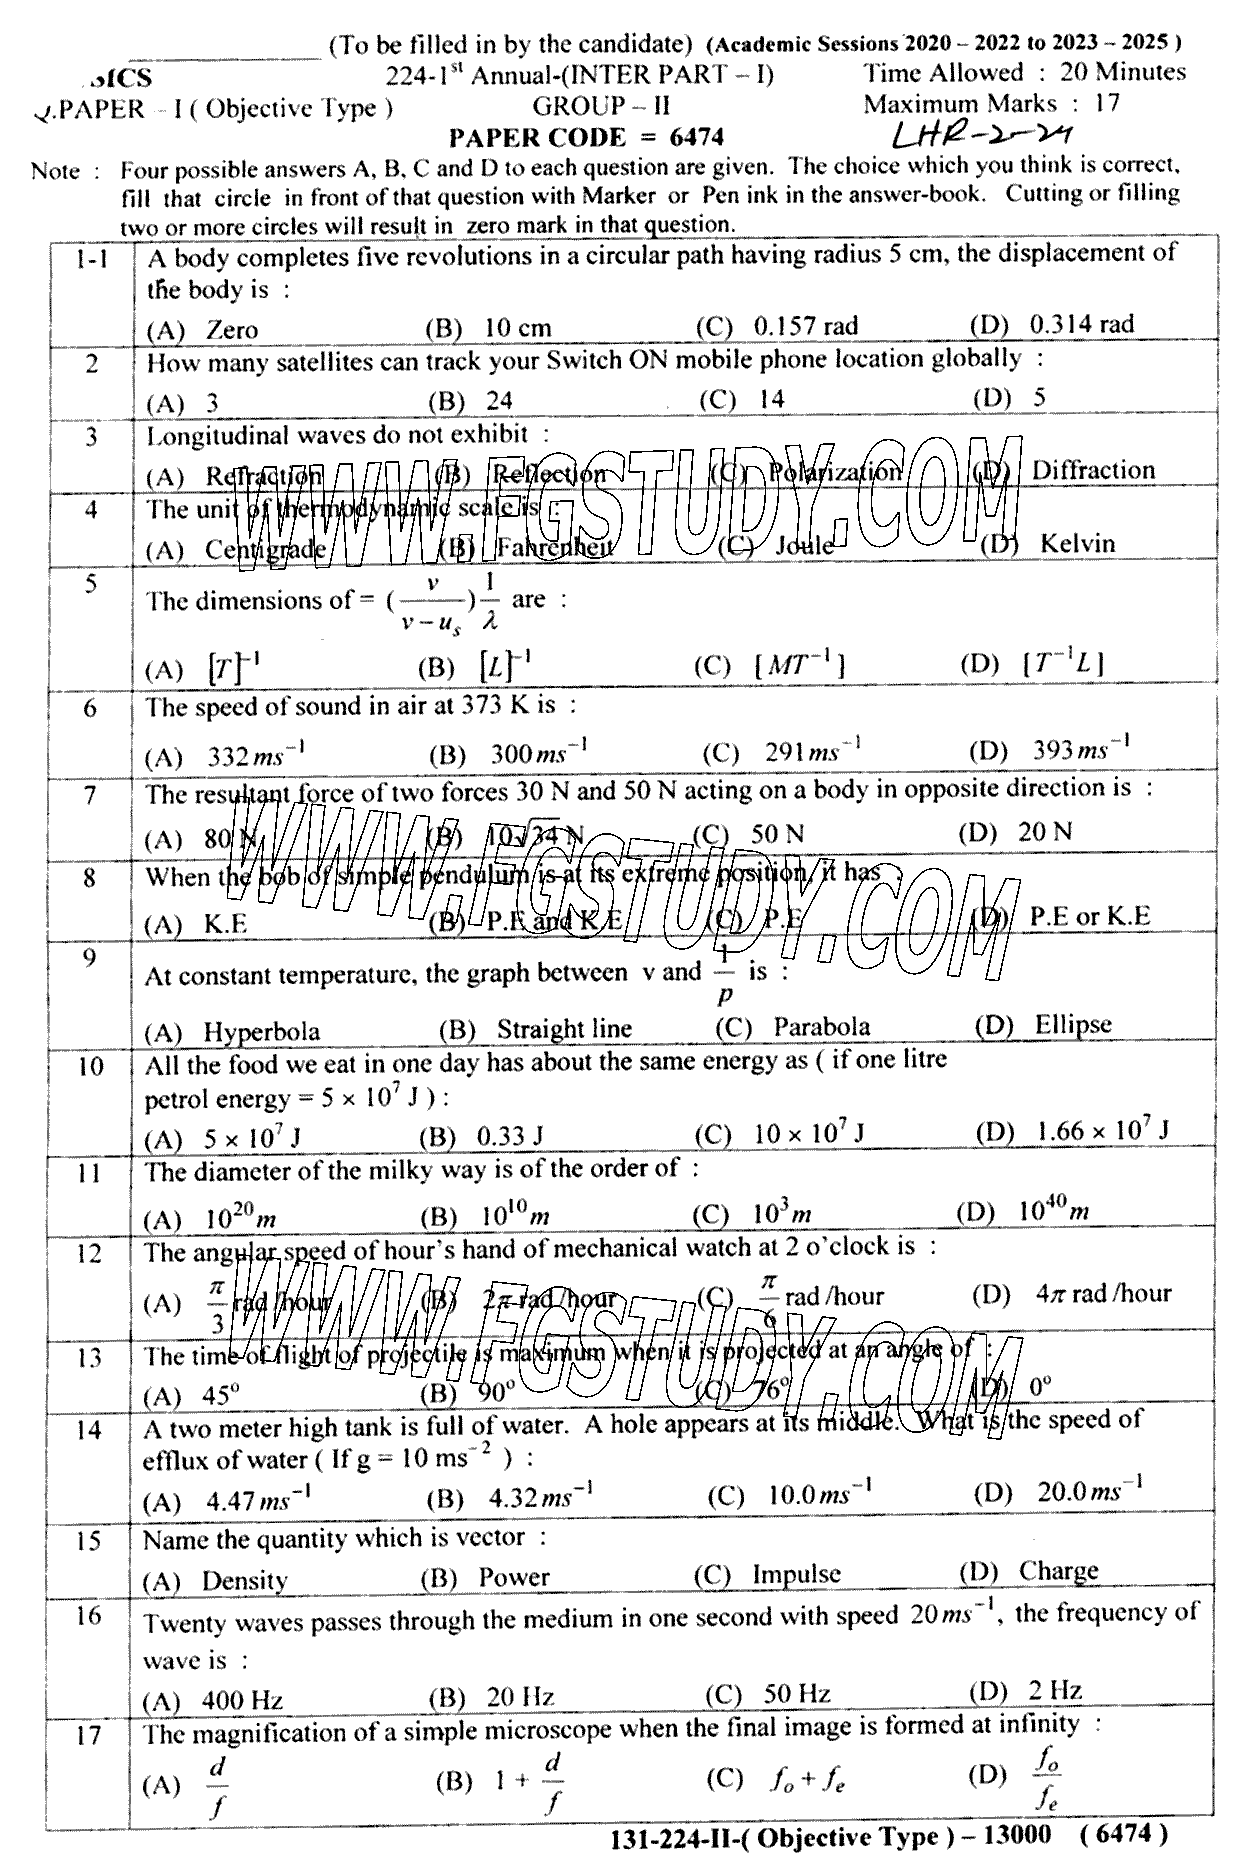 (To be filled in by the candidate) (Academic Sessions 2020 – 2022 to 2023 – 2025 )
SICS 224-1st Annual-(INTER PART – I) Time Allowed : 20 Minutes
Q.PAPER – I ( Objective Type ) GROUP – II Maximum Marks : 17
PAPER CODE = 6474 LHR-2-24
Note : Four possible answers A, B, C and D to each question are given. The choice which you think is correct,
fill that circle in front of that question with Marker or Pen ink in the answer-book. Cutting or filling
two or more circles will result in zero mark in that question.
1-1 A body completes five revolutions in a circular path having radius 5 cm, the displacement of
the body is :
(A) Zero (B) 10 cm (C) 0.157 rad (D) 0.314 rad
2 How many satellites can track your Switch ON mobile phone location globally :
(A) 3 (B) 24 (C) 14 (D) 5
3 Longitudinal waves do not exhibit :
(A) Refraction (B) Reflection (C) Polarization (D) Diffraction
WWW.FGSTUDY.COM
4 The unit of thermodynamic scale is :
(A) Centigrade (B) Fahrenheit (C) Joule (D) Kelvin
5 The dimensions of = (v/(v – u_s)) 1/λ are :
(A) [T]⁻¹ (B) [L]⁻¹ (C) [MT⁻¹] (D) [T⁻¹L]
6 The speed of sound in air at 373 K is :
(A) 332 ms⁻¹ (B) 300 ms⁻¹ (C) 291 ms⁻¹ (D) 393 ms⁻¹
7 The resultant force of two forces 30 N and 50 N acting on a body in opposite direction is :
(A) 80 N (B) 10√34 N (C) 50 N (D) 20 N
WWW.FGSTUDY.COM
8 When the bob of simple pendulum is at its extreme position, it has :
(A) K.E (B) P.E and K.E (C) P.E (D) P.E or K.E
9 At constant temperature, the graph between v and 1/p is :
(A) Hyperbola (B) Straight line (C) Parabola (D) Ellipse
10 All the food we eat in one day has about the same energy as ( if one litre
petrol energy = 5 × 10⁷ J ) :
(A) 5 × 10⁷ J (B) 0.33 J (C) 10 × 10⁷ J (D) 1.66 × 10⁷ J
11 The diameter of the milky way is of the order of :
(A) 10²⁰ m (B) 10¹⁰ m (C) 10³ m (D) 10⁴⁰ m
12 The angular speed of hour's hand of mechanical watch at 2 o'clock is :
(A) π/3 rad /hour (B) 2π rad /hour (C) π/6 rad /hour (D) 4π rad /hour
WWW.FGSTUDY.COM
13 The time of flight of projectile is maximum when it is projected at an angle of :
(A) 45° (B) 90° (C) 76° (D) 0°
14 A two meter high tank is full of water. A hole appears at its middle. What is the speed of
efflux of water ( If g = 10 ms⁻² ) :
(A) 4.47 ms⁻¹ (B) 4.32 ms⁻¹ (C) 10.0 ms⁻¹ (D) 20.0 ms⁻¹
15 Name the quantity which is vector :
(A) Density (B) Power (C) Impulse (D) Charge
16 Twenty waves passes through the medium in one second with speed 20 ms⁻¹, the frequency of
wave is :
(A) 400 Hz (B) 20 Hz (C) 50 Hz (D) 2 Hz
17 The magnification of a simple microscope when the final image is formed at infinity :
(A) d/f (B) 1 + d/f (C) f_o + f_e (D) f_o/f_e
131-224-II-( Objective Type ) – 13000 ( 6474 )